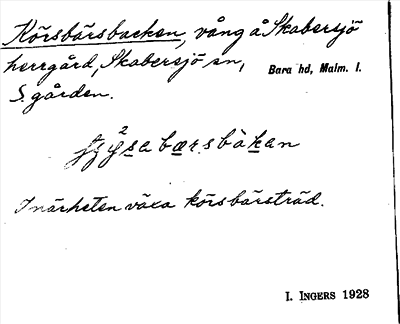 Körsbärsbacken, vång å Skabersjö
herrgård, Skabersjö sn, Bara hd, Malm. l.
S. gården.
I närheten växa körsbärsträd.
I. INGERS 1928